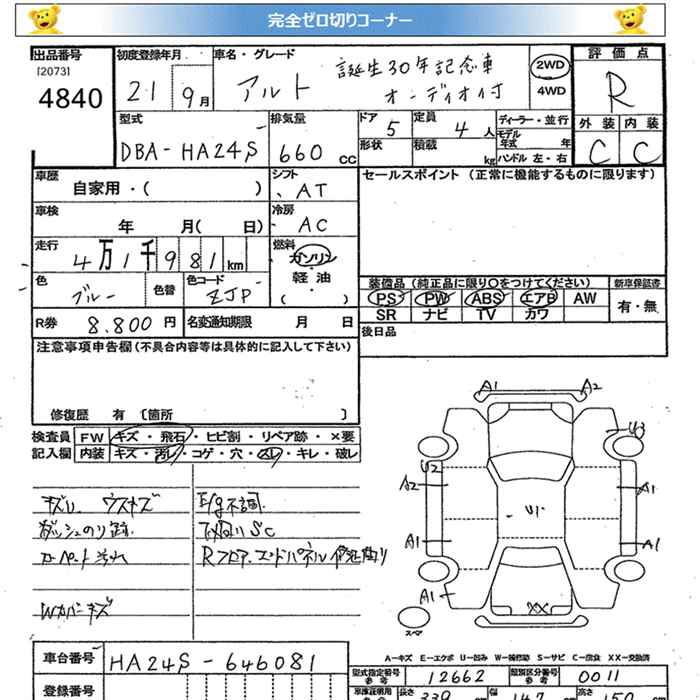 完全ゼロ切りコーナー
出品番号 [2073] 4840
初度登録年月 21 9月
車名・グレード アルト 誕生30年記念車 オーディオ付
2WD 4WD
評価点 R
外装 C 内装 C
型式 DBA-HA24S
排気量 660 cc
ドア 5 定員 4 人
形状 積載 kg
ディーラー・並行
モデル年式 年
ハンドル 左・右
車歴 自家用・( )
シフト AT
セールスポイント (正常に機能するものに限ります)
車検 年 月( 日)
冷房 AC
走行 4万1千981km
燃料 ガソリン・軽油・( )
色 ブルー 色替 色コード ZJP
装備品 (純正品に限り○をつけてください)
新車保証書 有・無
PS PW ABS エアB AW
SR ナビ TV カワ
R券 8.800円 名変通知期限 月 日
後日品
注意事項申告欄 (不具合内容等は具体的に記入して下さい)
修復歴 有 〔箇所 〕
検査員記入欄 FW キズ・飛石・ヒビ割・リペア跡・×要
内装 キズ・汚レ・コゲ・穴・スレ・キレ・破レ
キズU ウスキズ E/g不調
ダッシュのり跡 下回りSC
カーペット汚れ Rフロア・エンドパネル修正有り
Wカバーキズ
A1 A2
U3
U2
A2 A1
U1
A1 A1
A1 XX
スペア
A-キズ E-エクボ U-凹み W-補修跡 S-サビ C-腐食 XX-交換済
車台番号 HA24S-646081
型式指定番号 参考 12662 類別区分番号 参考 0011
登録番号
車庫証明用 参考 長さ 339 幅 147 高さ 150